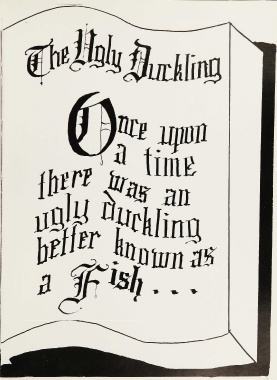 The Ugly Duckling
Once upon
a time
there was an
ugly duckling
better known as
a Fish...